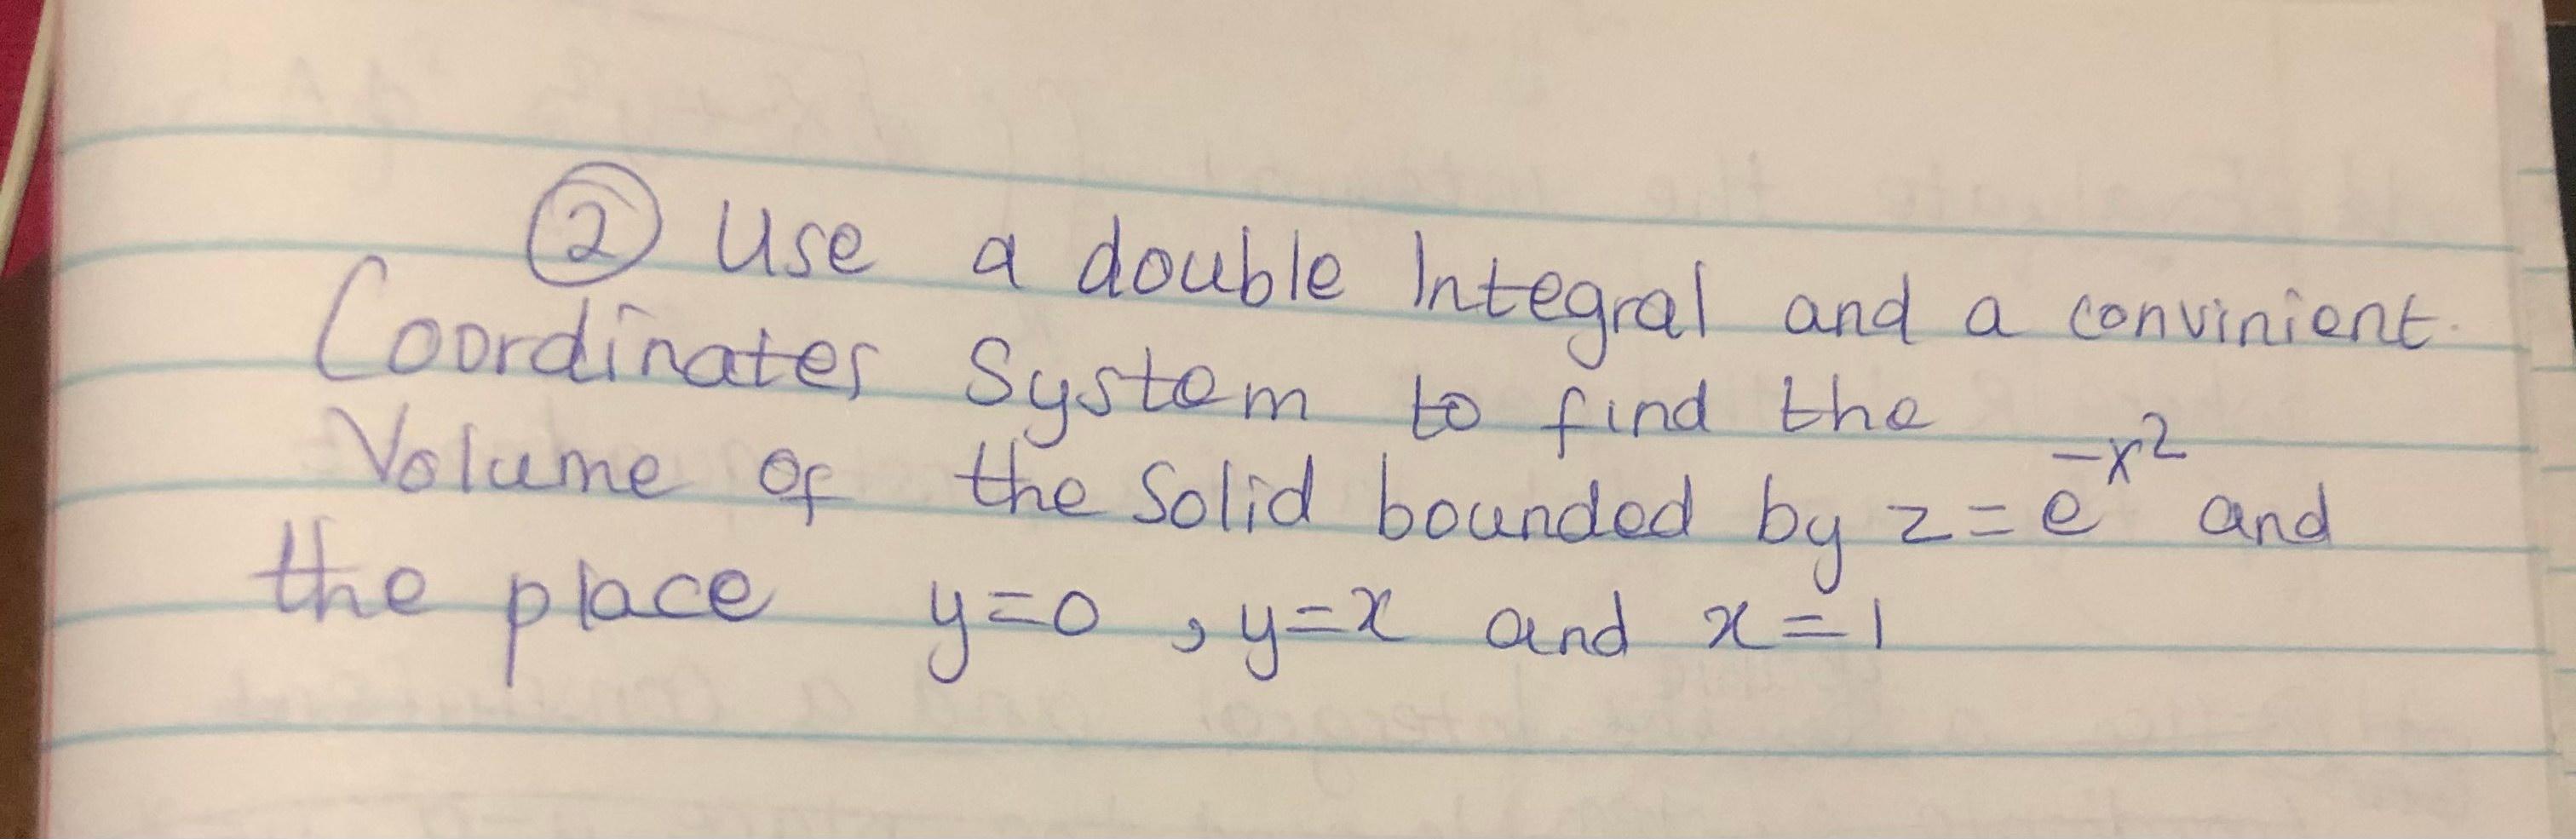 ② Use a double Integral and a convinient
Coordinates System to find the
Volume of the Solid bounded by z = e^{-x^2} and
the place y=0 , y=x and x=1